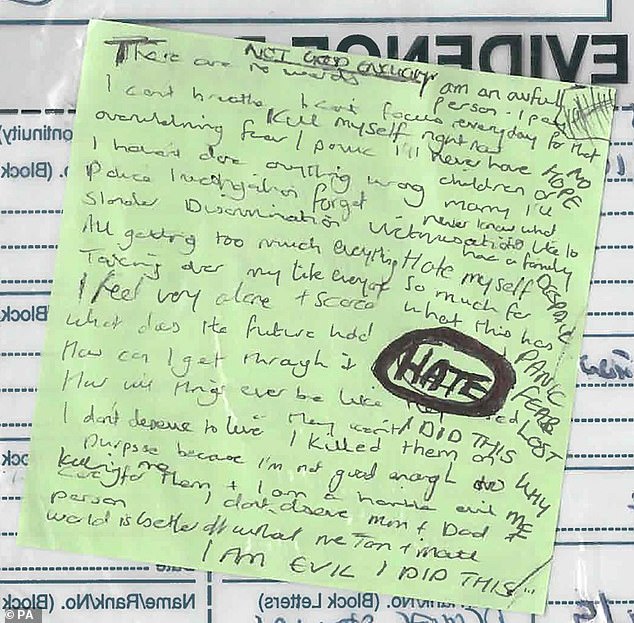 NOT GOOD ENOUGH
There are no words I am an awful person - I pay
I can't breathe I can't focus everyday for that
Kill myself right now
overwhelming fear / panic I'll never have children or
I haven't done anything wrong marry I'll
Police investigation forget never know what
slander Discrimination victimisation like to have a family
All getting too much everything Hate myself so much for
Taking over my life everyone what this has
I feel very alone + scared
What does the future hold
How can I get through it
How will things ever be like they
HATE
NO HOPE
DESPAIR
PANIC
FEAR
LOST
I DID THIS
WHY ME
I don't deserve to live I killed them on
purpose because I'm not good enough
to care for them + I am a horrible evil
person I don't deserve mum + Dad
killing me
world is better off without me
I AM EVIL I DID THIS
EVIDENCE
(Continuity)
Name/Rank/No. (Block
(Block Letters)
Name/Rank/No. (Block Letters)
Date
© PA